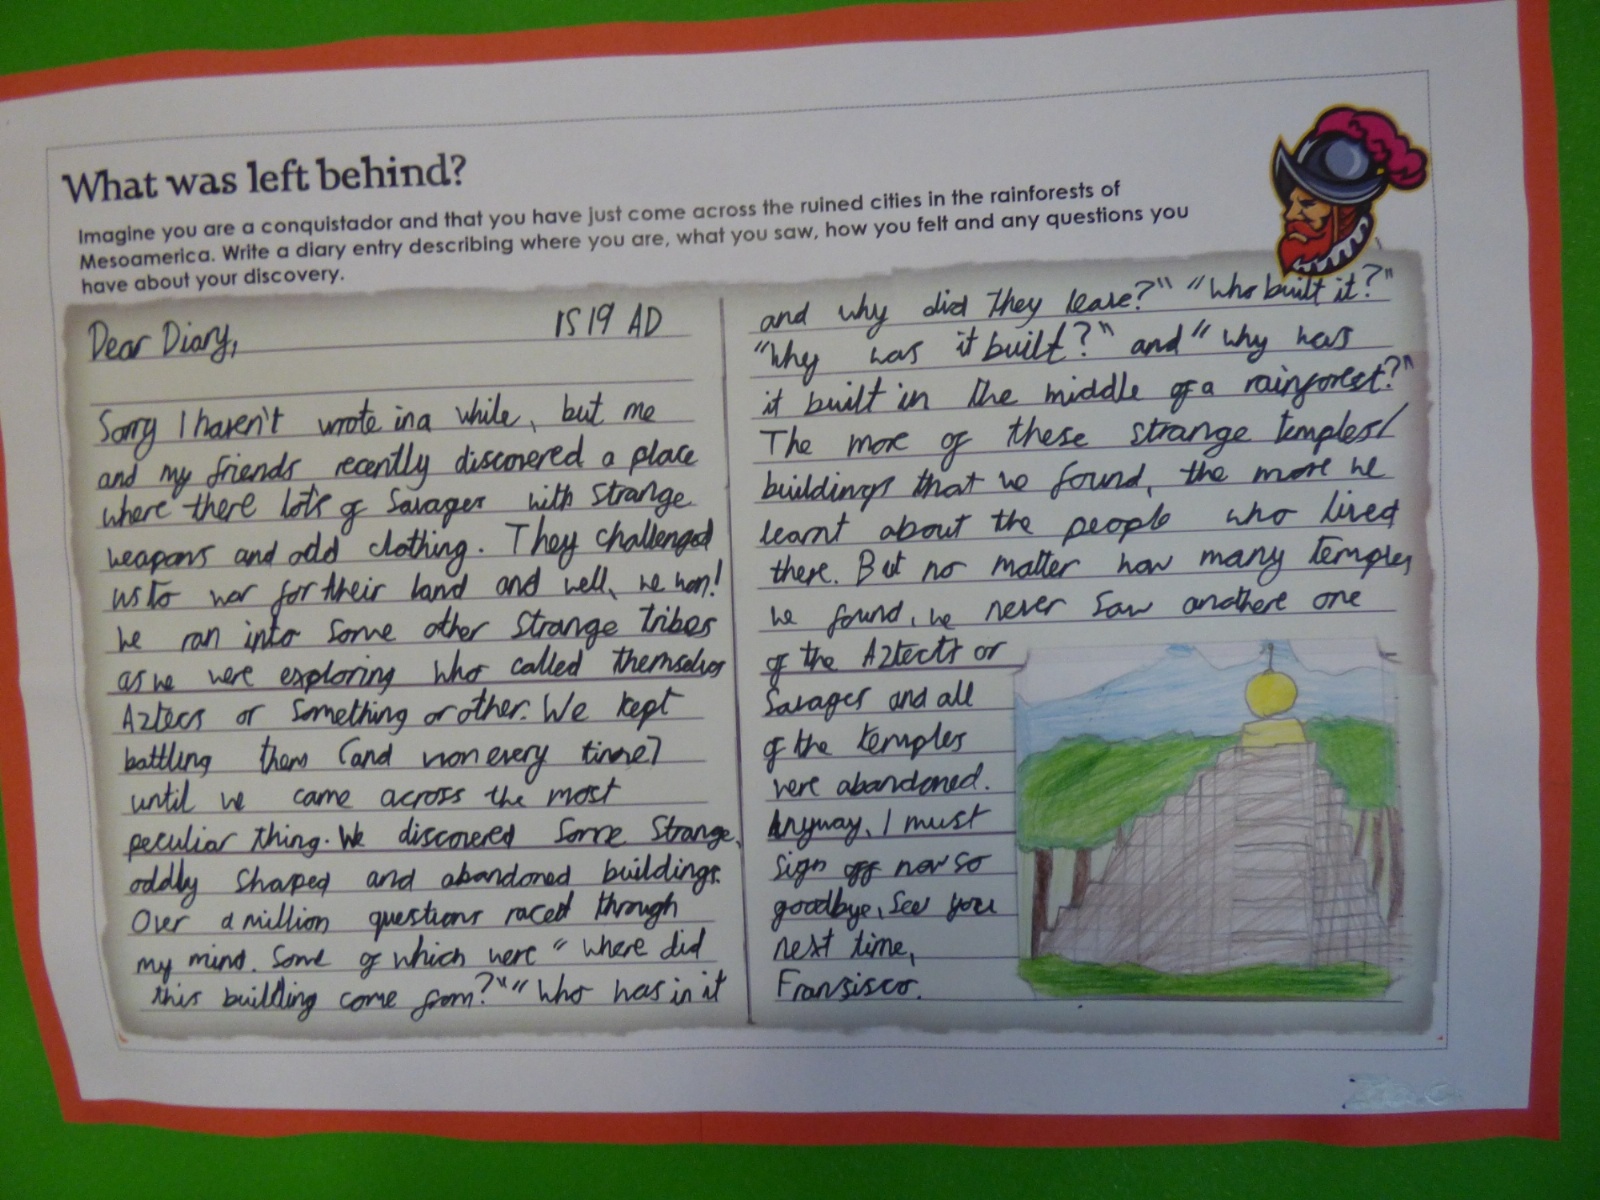 What was left behind?
Imagine you are a conquistador and that you have just come across the ruined cities in the rainforests of
Mesoamerica. Write a diary entry describing where you are, what you saw, how you felt and any questions you
have about your discovery.
Dear Diary, 1519 AD
Sorry I haven't wrote in a while, but me
and my friends recently discovered a place
where there lots of Savages with strange
weapons and odd clothing. They challenged
us to war for their land and well, we won!
We ran into some other strange tribes
as we were exploring who called themselves
Aztecs or something or other. We kept
battling them (and won every time)
until we came across the most
peculiar thing. We discovered some strange,
oddly shaped and abandoned buildings.
Over a million questions raced through
my mind. Some of which were "Where did
this building come from?" "Who was in it
and why did they leave?" "Who built it?"
"Why was it built?" and "Why was
it built in the middle of a rainforest?"
The more of these strange temples/
buildings that we found, the more we
learnt about the people who lived
there. But no matter how many temples
we found, we never saw anothere one
of the Aztects or
Savages and all
of the temples
were abandoned.
Anyway, I must
sign off now so
goodbye, see you
next time,
Fransisco.
Zac